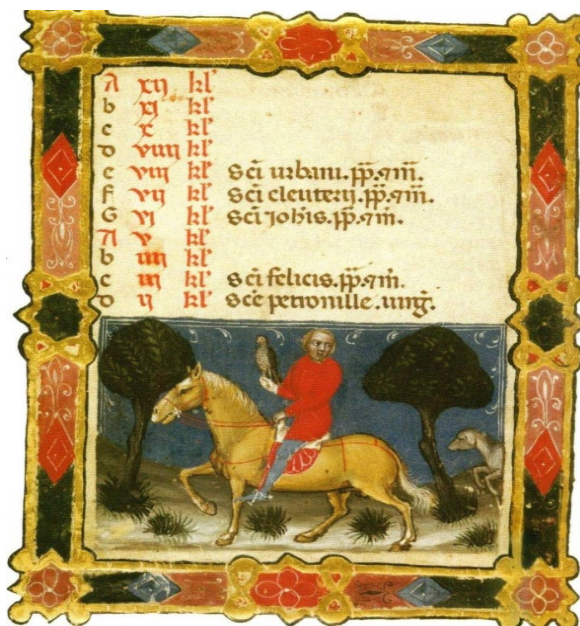 A xij kl'
b xj kl'
c x kl'
d viiij kl'
e viij kl' Sci urbani. pp. 7 m.
f vij kl' Sci eleuterij. pp. 7 m.
G vj kl' Sci johis. pp. 7 m.
A v kl'
b iiij kl'
c iij kl' Sci felicis. pp. 7 m.
d ij kl' Sce petronille. uirg.